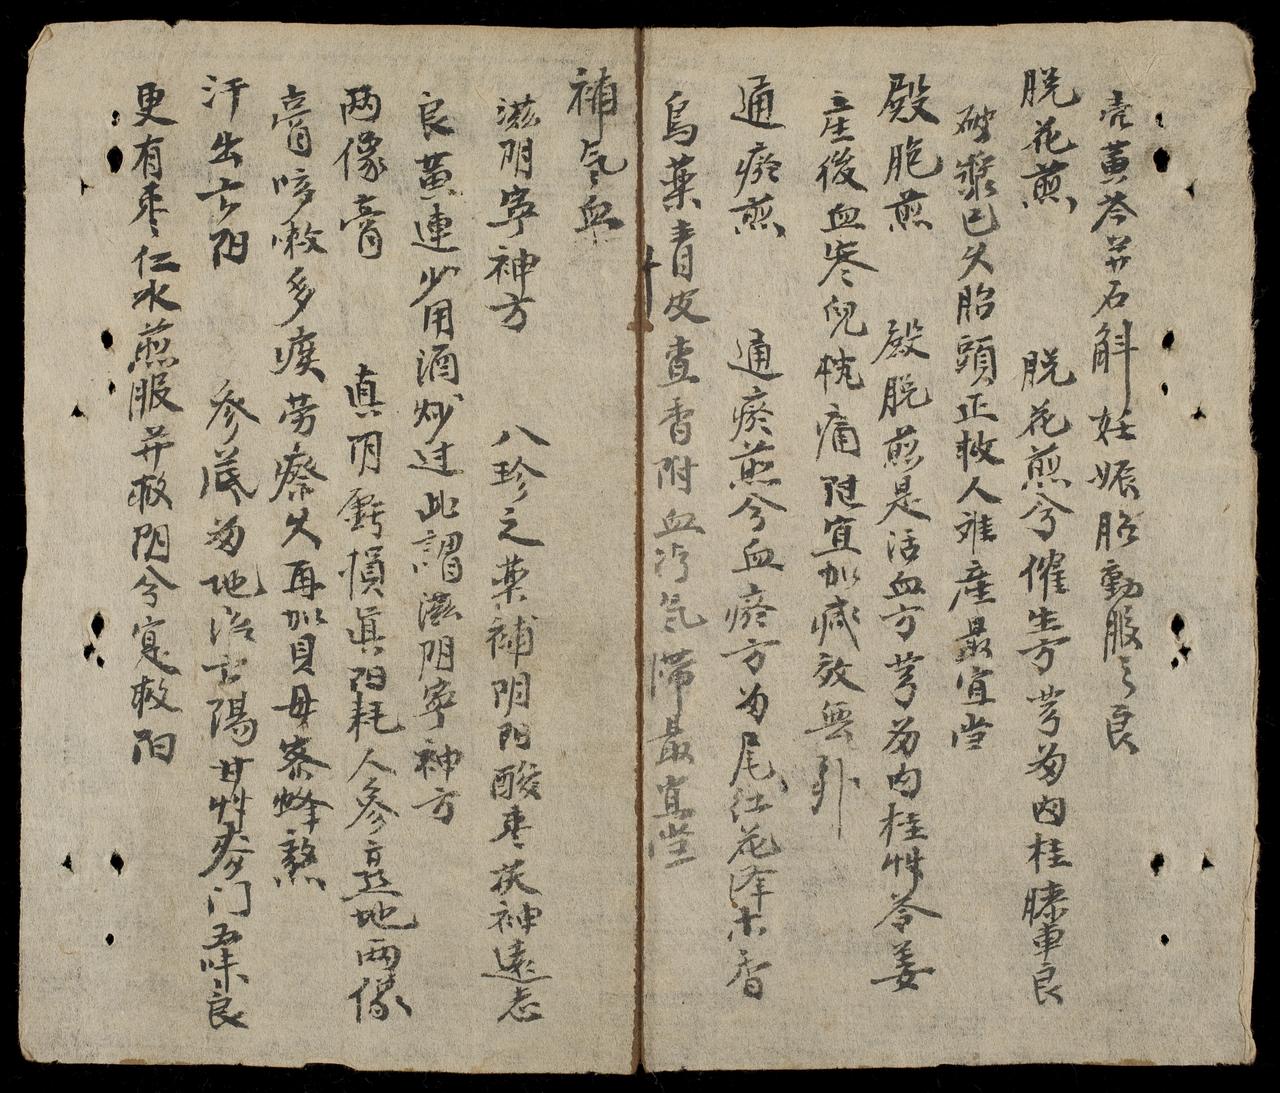 壳黄芩并石斛妊娠胎動服之良
脱花煎 脱花煎兮催生方芎歸肉桂膝車良
破漿已久胎頭正救人難産最宜当
殿胞煎 殿脱煎是活血方芎歸肉桂草苓姜
産後血寒兒枕痛 宜加减效無
通瘀煎 通瘀煎兮血瘀方歸尾红花澤木香
烏藥青皮查香附血冷气滞最宜当
補气血
滋阴寧神方 八珍之藥補阴阳酸枣茯神遠志
良黄連少用酒炒过此謂滋阴寧神方
两儀膏 真阴虧損真阳耗人參熟地两儀
膏咳嗽多痰劳瘵久再加貝母索蜂熬
汗出亡阳 參茋歸地治亡陽甘草麥门五味良
更有枣仁水煎服并救阴兮寔救阳